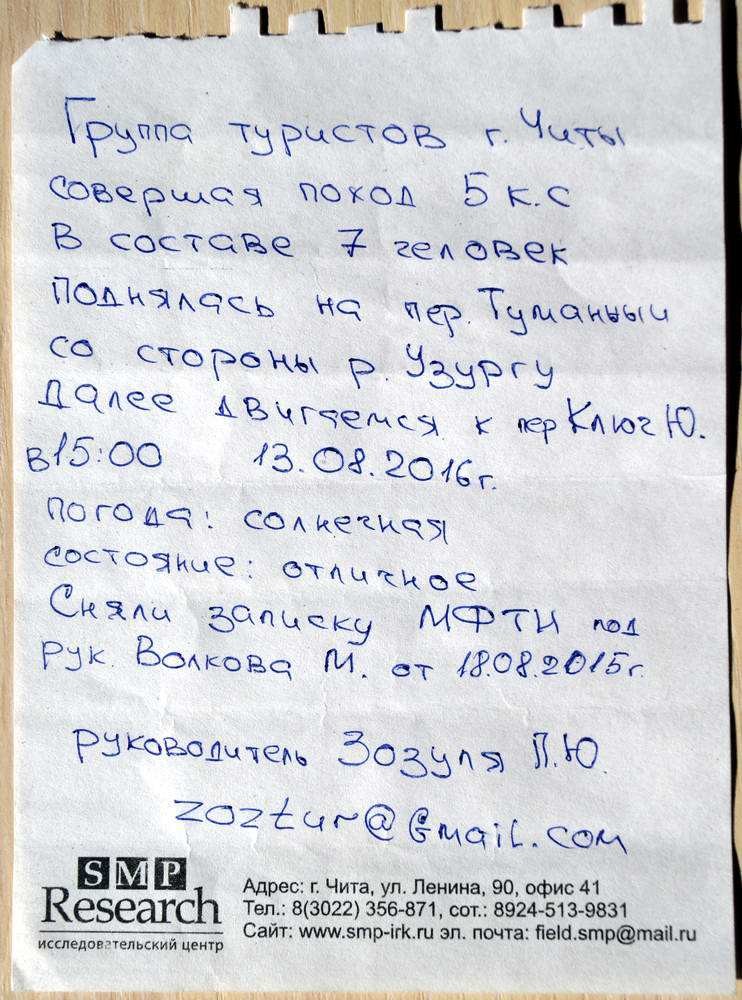 Группа туристов г. Читы
совершая поход 5 к.с
в составе 7 человек
поднялась на пер. Туманный
со стороны р. Узургу
далее двигаемся к пер Ключ Ю.
в 15:00 13.08.2016г.
погода: солнечная
состояние: отличное
Сняли записку МФТИ под
рук. Волкова М. от 18.08.2015г.
руководитель Зозуля П.Ю.
zoztur@Gmail.com
SMP
Research
исследовательский центр
Адрес: г. Чита, ул. Ленина, 90, офис 41
Тел.: 8(3022) 356-871, сот.: 8924-513-9831
Сайт: www.smp-irk.ru эл. почта: field.smp@mail.ru